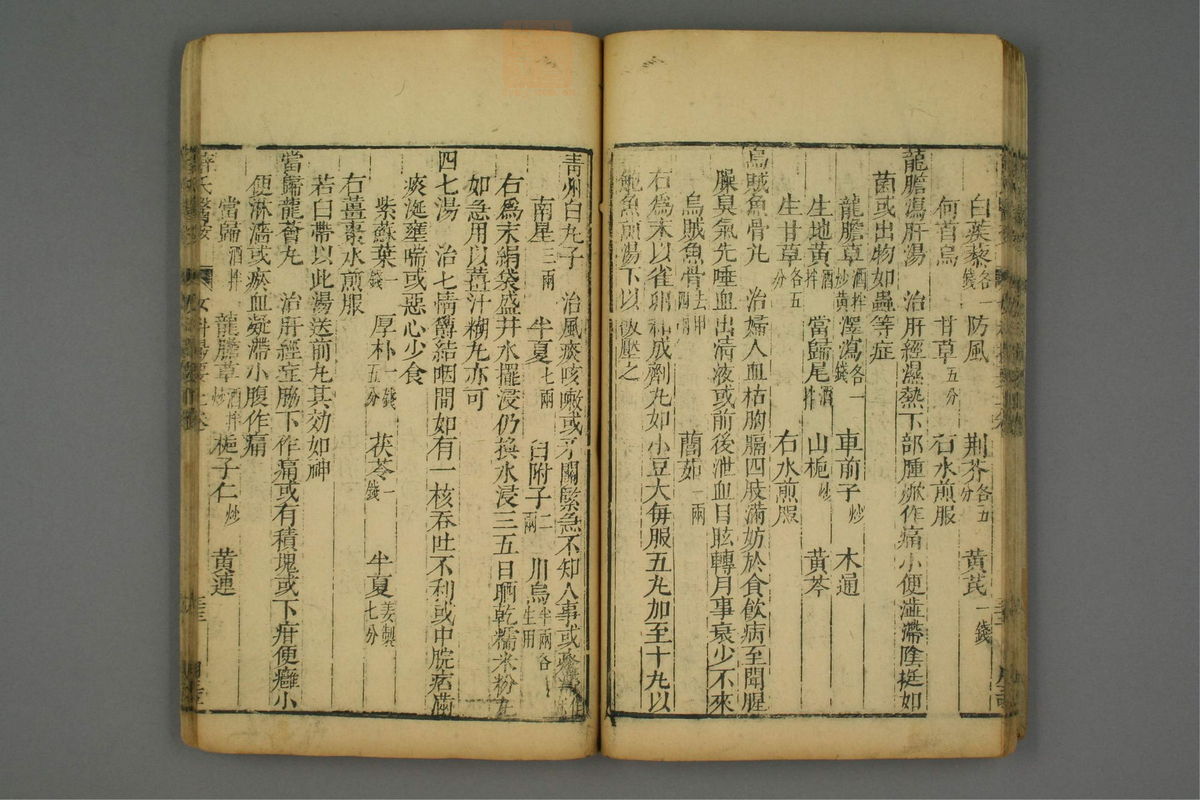 白蒺藜各一錢 防風 荆芥各五分 黄芪一錢
何首烏 甘草五分 右水煎服
龍膽瀉肝湯 治肝經濕熱下部腫焮作痛小便澁滯陰挺如
菌或出物如蟲等症
龍膽草酒拌炒黄 澤瀉各一錢 車前子炒 木通
生地黄酒拌 當歸尾酒拌 山梔炒 黄芩
生甘草各五分 右水煎服
烏賊魚骨丸 治婦人血枯胸膈四肢滿妨於食飲病至聞腥
臊臭氣先唾血出清液或前後泄血目眩轉月事衰少不來
烏賊魚骨去甲四兩 藘茹一兩
右爲末以雀卵和成劑丸如小豆大每服五丸加至十丸以
鮑魚煎湯下以飯壓之
青州白丸子 治風痰咳嗽或牙關緊急不知人事或
南星三兩 半夏七兩 白附子一兩 川烏半兩各生用
右爲末絹袋盛井水擺浸仍換水浸三五日晒乾糯米粉丸
如急用以薑汁糊丸亦可
四七湯 治七情鬱結咽間如有一核吞吐不利或中脘痞滿
痰涎壅喘或惡心少食
紫蘇葉一錢 厚朴一錢五分 茯苓一錢 半夏姜製七分
右薑棗水煎服
若白帶以此湯送前丸其効如神
當歸龍薈丸 治肝經症脇下作痛或有積塊或下疳便癰小
便淋澀或瘀血凝滯小腹作痛
當歸酒拌 龍膽草酒拌炒 梔子仁炒 黄連
薛氏醫案 女科撮要上卷